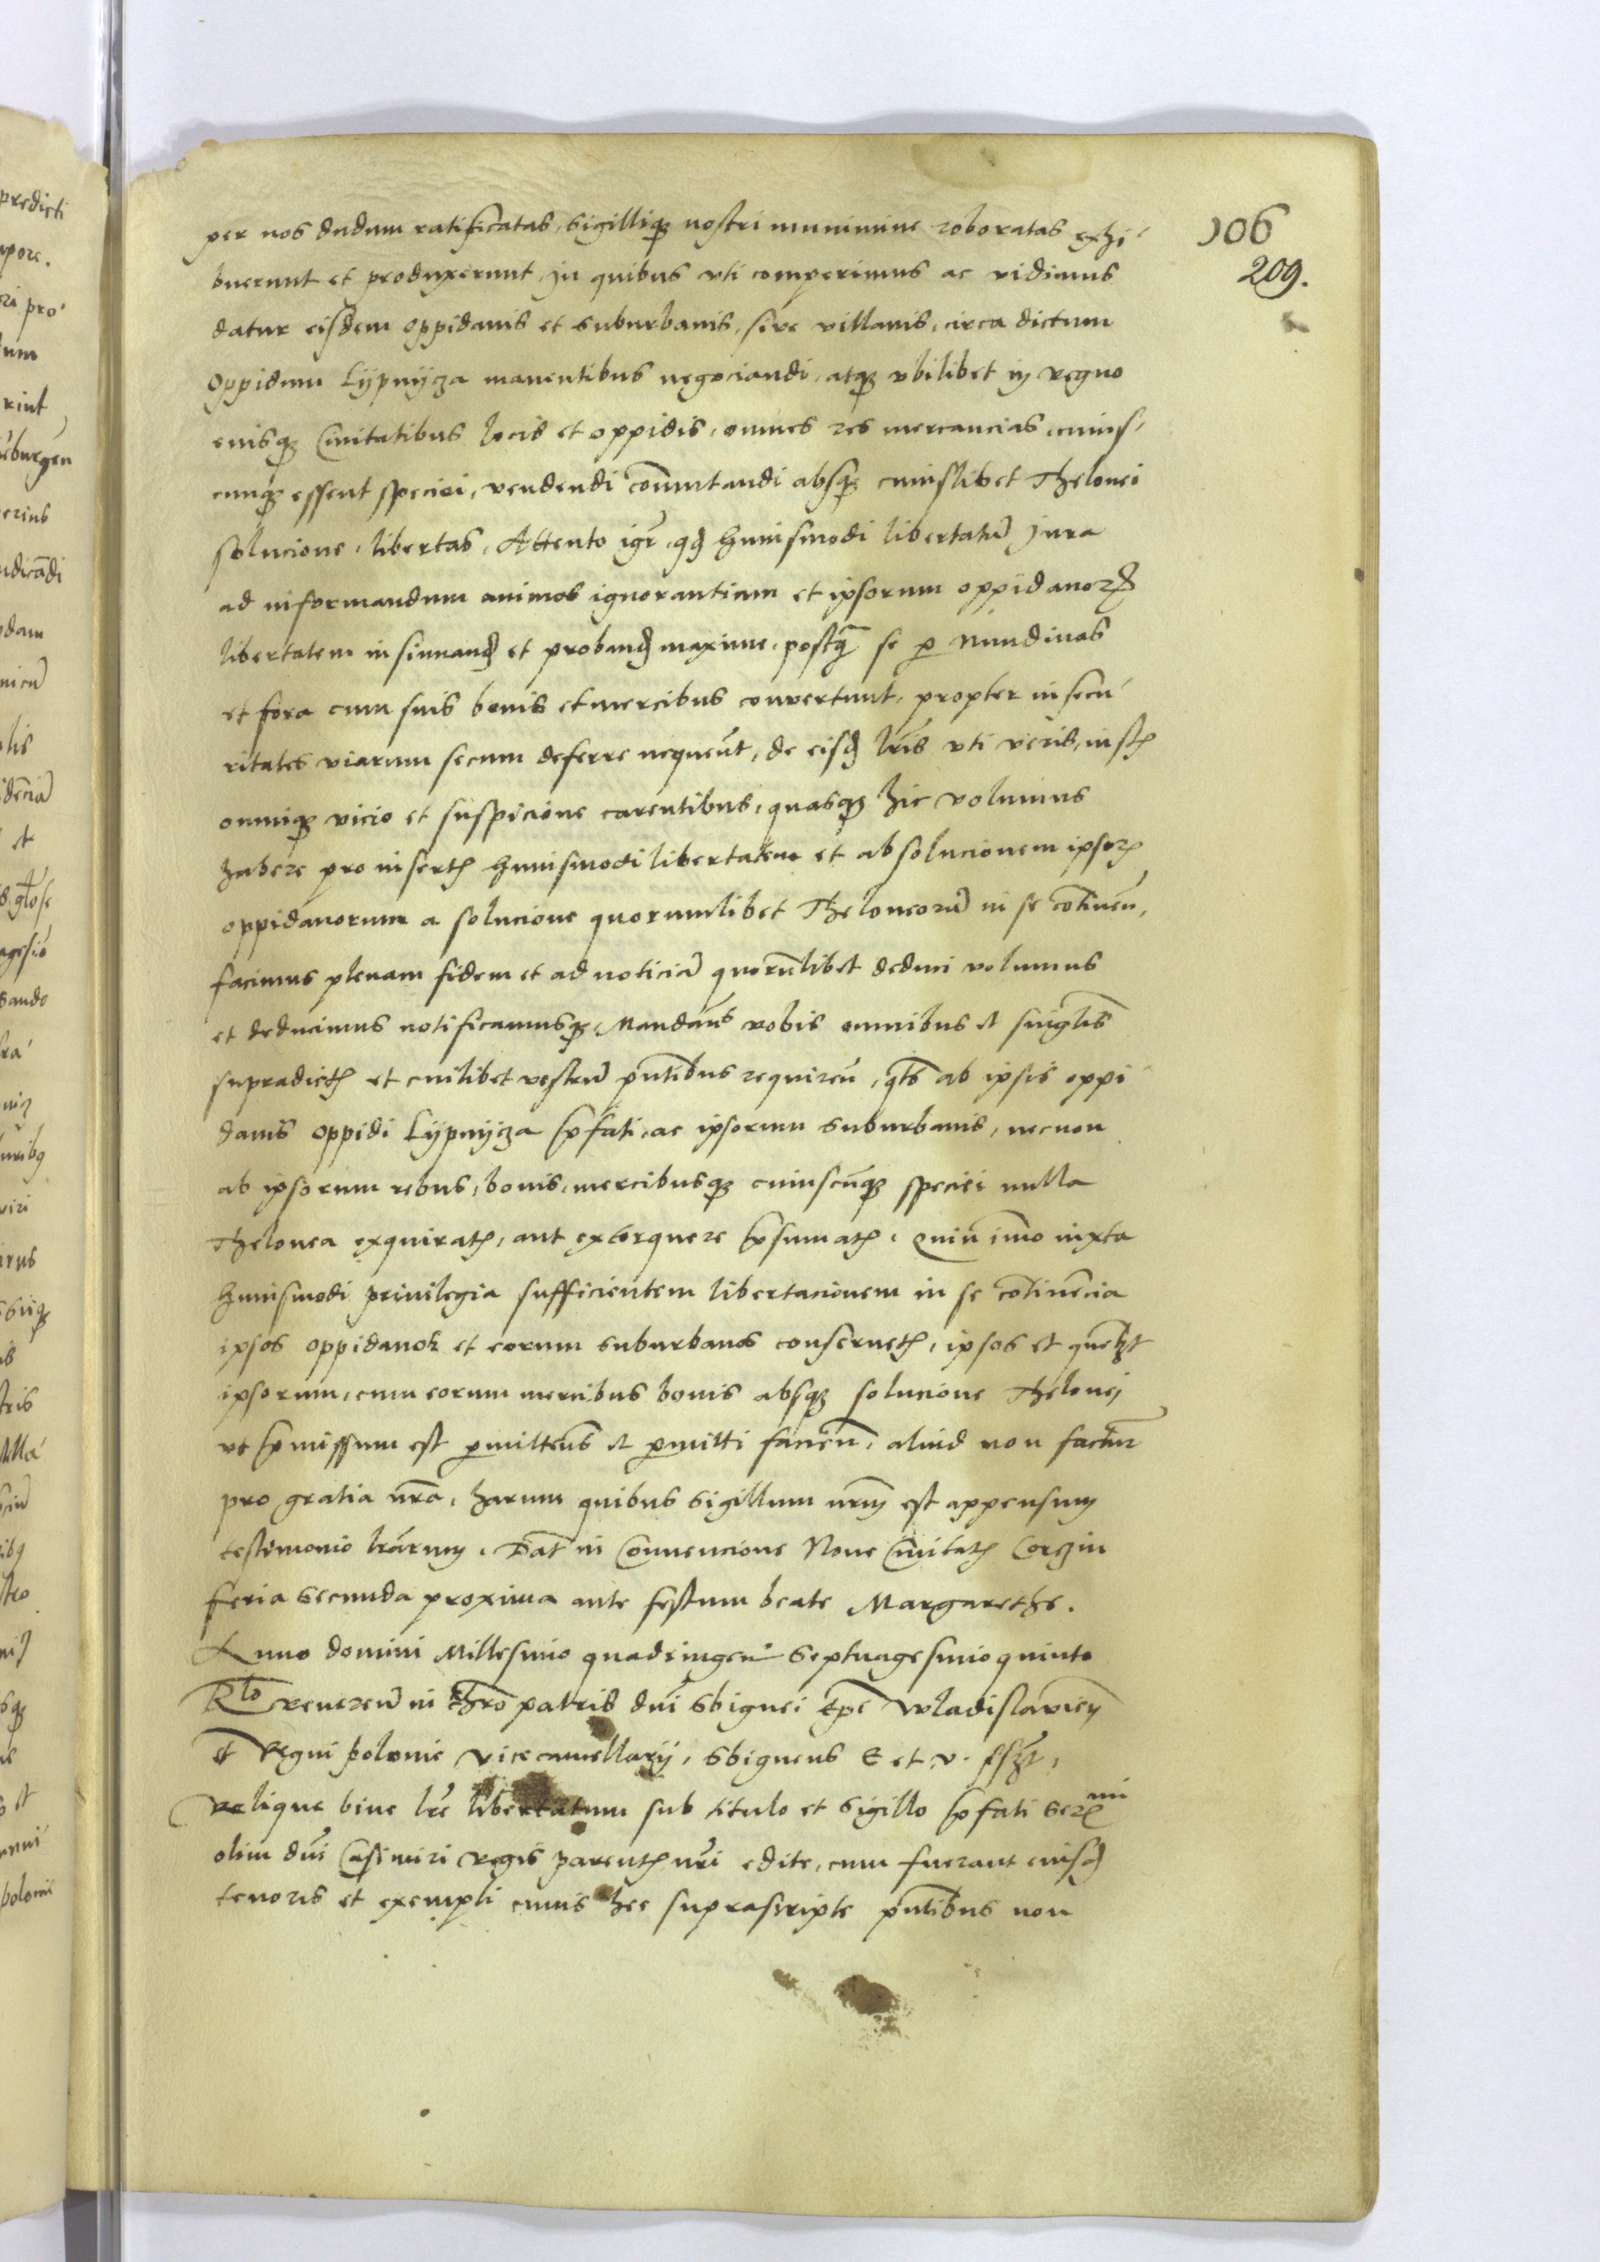 106
209.
per nos dudum ratificatas, sigilliqꝫ nostri munimine roboratas exhi-
buerunt et produxerunt, in quibus vti comperimus ac vidimus
datur eisdem oppidanis et suburbanis, sive villanis, circa dictum
oppidum Lypnycza manentibus negociandi, atqꝫ vbilibet in regno
eiusqꝫ Civitatibus locis et oppidis, omnes res mercancias, cuius-
cunqꝫ essent speciei, vendendi com̄utandi absqꝫ cuiuslibet Thelonei
solucione, libertas, Attento igr̄, qꝫ huiusmodi libertatū Jura
ad informandum animos ignorantium et ipsorum oppidanorꝝ
libertatem insinuandꝫ et probandꝫ maxime, postqꝫ se ꝑ Nundinas
et fora cum suis bonis et mercibus convertunt, propter insecu-
ritates viarum secum deferre nequeūt, de eisdꝫ lris vti veris, iustꝭ
omniqꝫ vicio et suspicione carentibus, quasqꝫ hic volumus
habere pro insertꝭ huiusmodi libertatem et absolucionem ipsorꝝ
oppidanorum a solucione quorumlibet Theloneorū in se cōtineñ,
facimus plenam fidem et ad noticiā quorūlibet deduci volumus
et deducimus notificamusqꝫ, Mandañs vobis omnibus et singlis
supradictꝭ et cuilibet vestrū pñtibus requireñ, qts ab ipsis oppi-
danis oppidi Lypnycza p̄fati, ac ipsorum suburbanis, necnon
ab ipsorum rebus, bonis, mercibusqꝫ cuiuscūqꝫ speciei nulla
Thelonea exquiratꝭ, aut extorquere p̄sumatꝭ, Quin̄ immo iuxta
huiusmodi privilegia sufficientem libertacionem in se cōtinēcia
ipsos oppidanos et eorum suburbanos conservetꝭ, ipsos et quemlꝫt
ipsorum, cum eorum mercibus bonis absqꝫ solucione Thelonei
vt p̄missum est ꝑmitteñs et ꝑmitti facieñ, aliud non factur̄
pro gratia nr̄a, harum quibus sigillum nr̄m est appensum
testimonio lrarum, Dat̄ in Convencione Nove Civitatꝭ Corczin
feria secunda proxima ante festum beate Margarethe.
Anno domini Millesimo quadringeñ Septuagesimoquinto
Rlo Revereñ in xpo patris dni Sbignei Epi Wladislavieñ
et Regni Polonie vicecancellarij, Sbigneus E et v. sszt,
Relique bine lre libertatum sub titulo et sigillo p̄fati Sermi
olim dni Casimiri regis parentꝭ nri edite, cum fuerant eiusdꝫ
tenoris et exempli cuius hec suprascripte pñtibus non